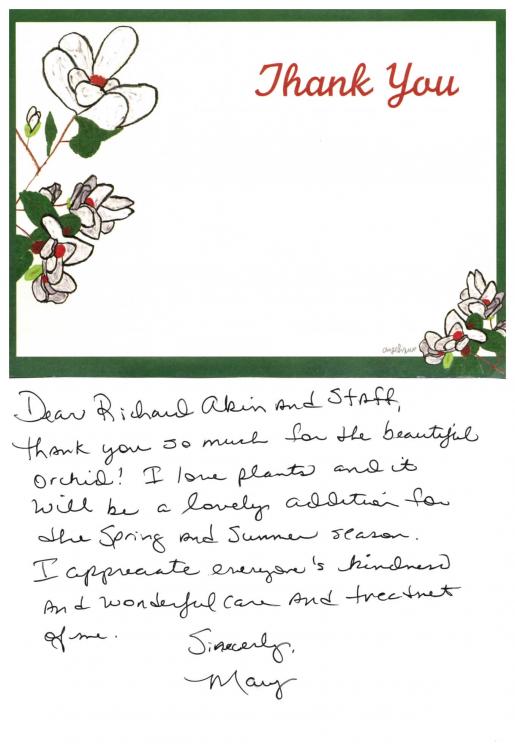 Thank You
Dear Richard Akin and Staff,
thank you so much for the beautiful
orchid! I love plants and it
will be a lovely addition for
the Spring and Summer season.
I appreciate everyone's kindness
and wonderful care and treatment
of me.
Sincerely,
Mary